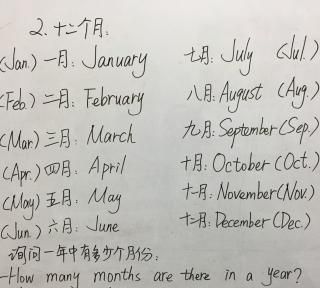 2. 十二个月:
(Jan.) 一月: January
(Feb.) 二月: February
(Mar) 三月: March
(Apr.) 四月: April
(May) 五月: May
(Jun.) 六月: June
七月: July (Jul.)
八月: August (Aug.)
九月: September (Sep.)
十月: October (Oct.)
十一月: November (Nov.)
十二月: December (Dec.)
询问一年中有多少个月份:
-How many months are there in a year?